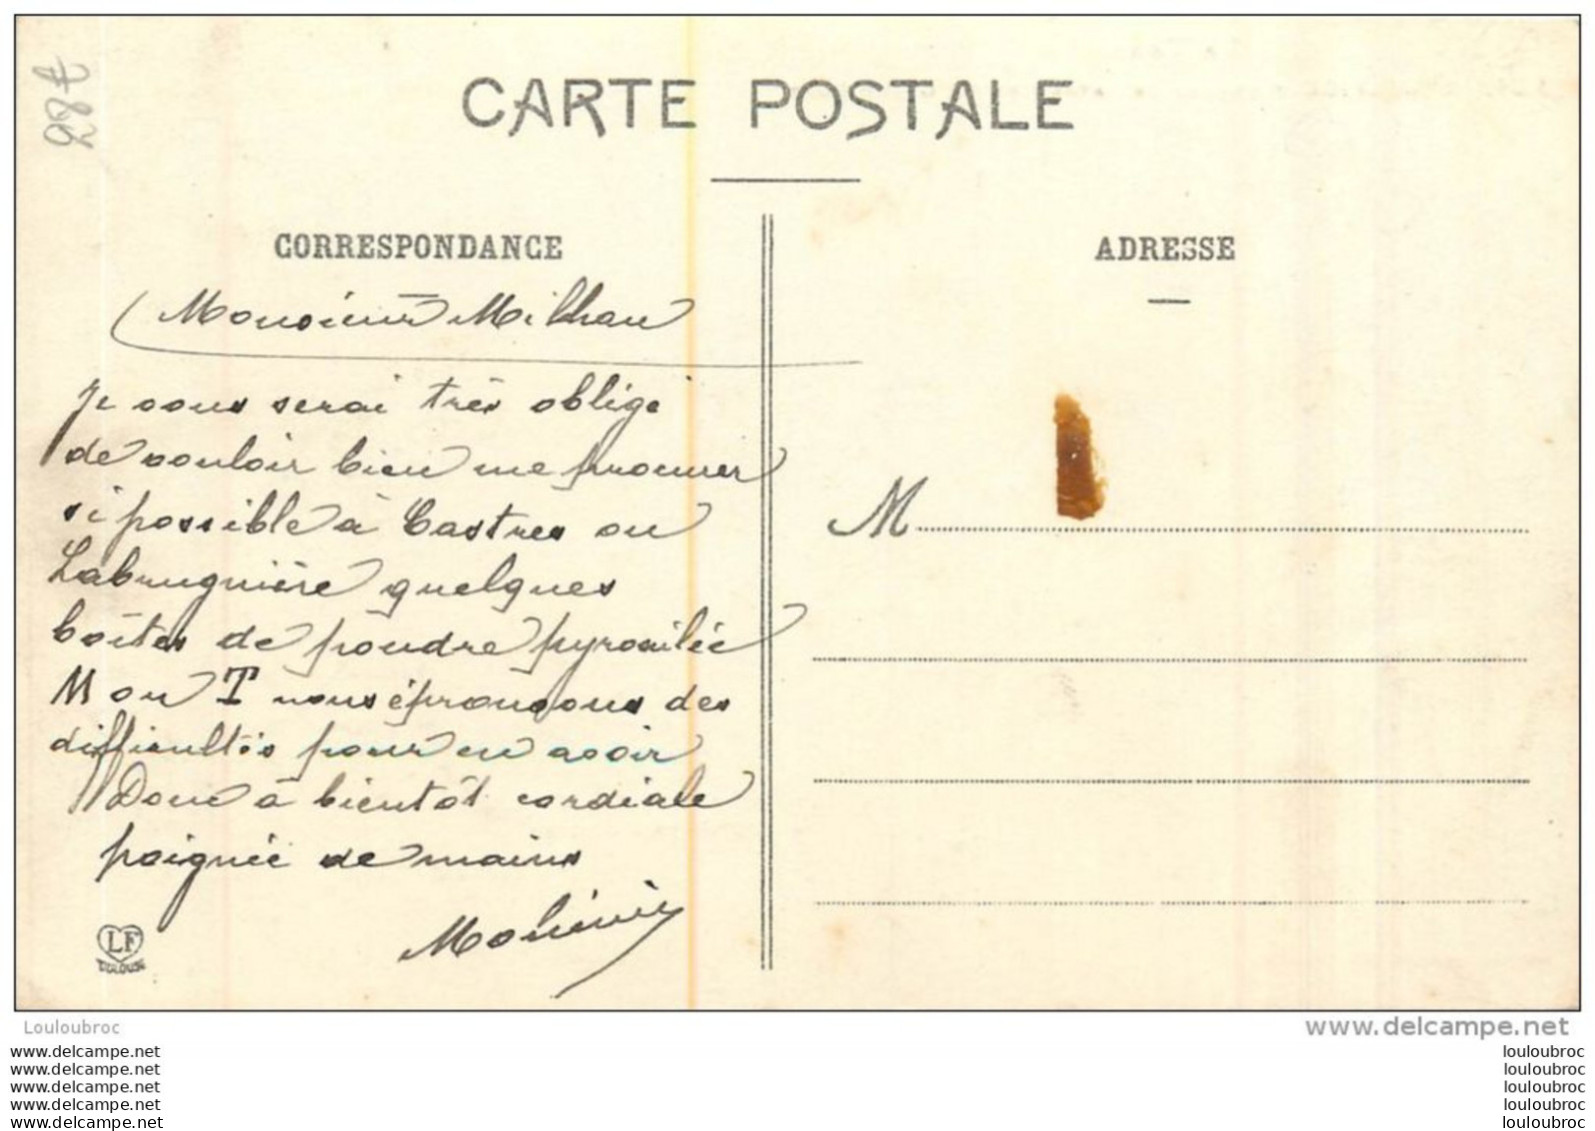 287
CARTE POSTALE
CORRESPONDANCE
Monsieur Milhau
Je vous serai très obligé
de vouloir bien me procurer
si possible à Castres ou
Labruguière quelques
boîtes de poudre pyroxilée
M ou T nous éprouvons des
difficultés pour en avoir
Donc à bientôt cordiale
poignée de mains
LF
TOULOUSE
ADRESSE
M
Louloubroc
www.delcampe.net
www.delcampe.net
www.delcampe.net
www.delcampe.net
www.delcampe.net
www.delcampe.net
louloubroc
louloubroc
louloubroc
louloubroc
louloubroc